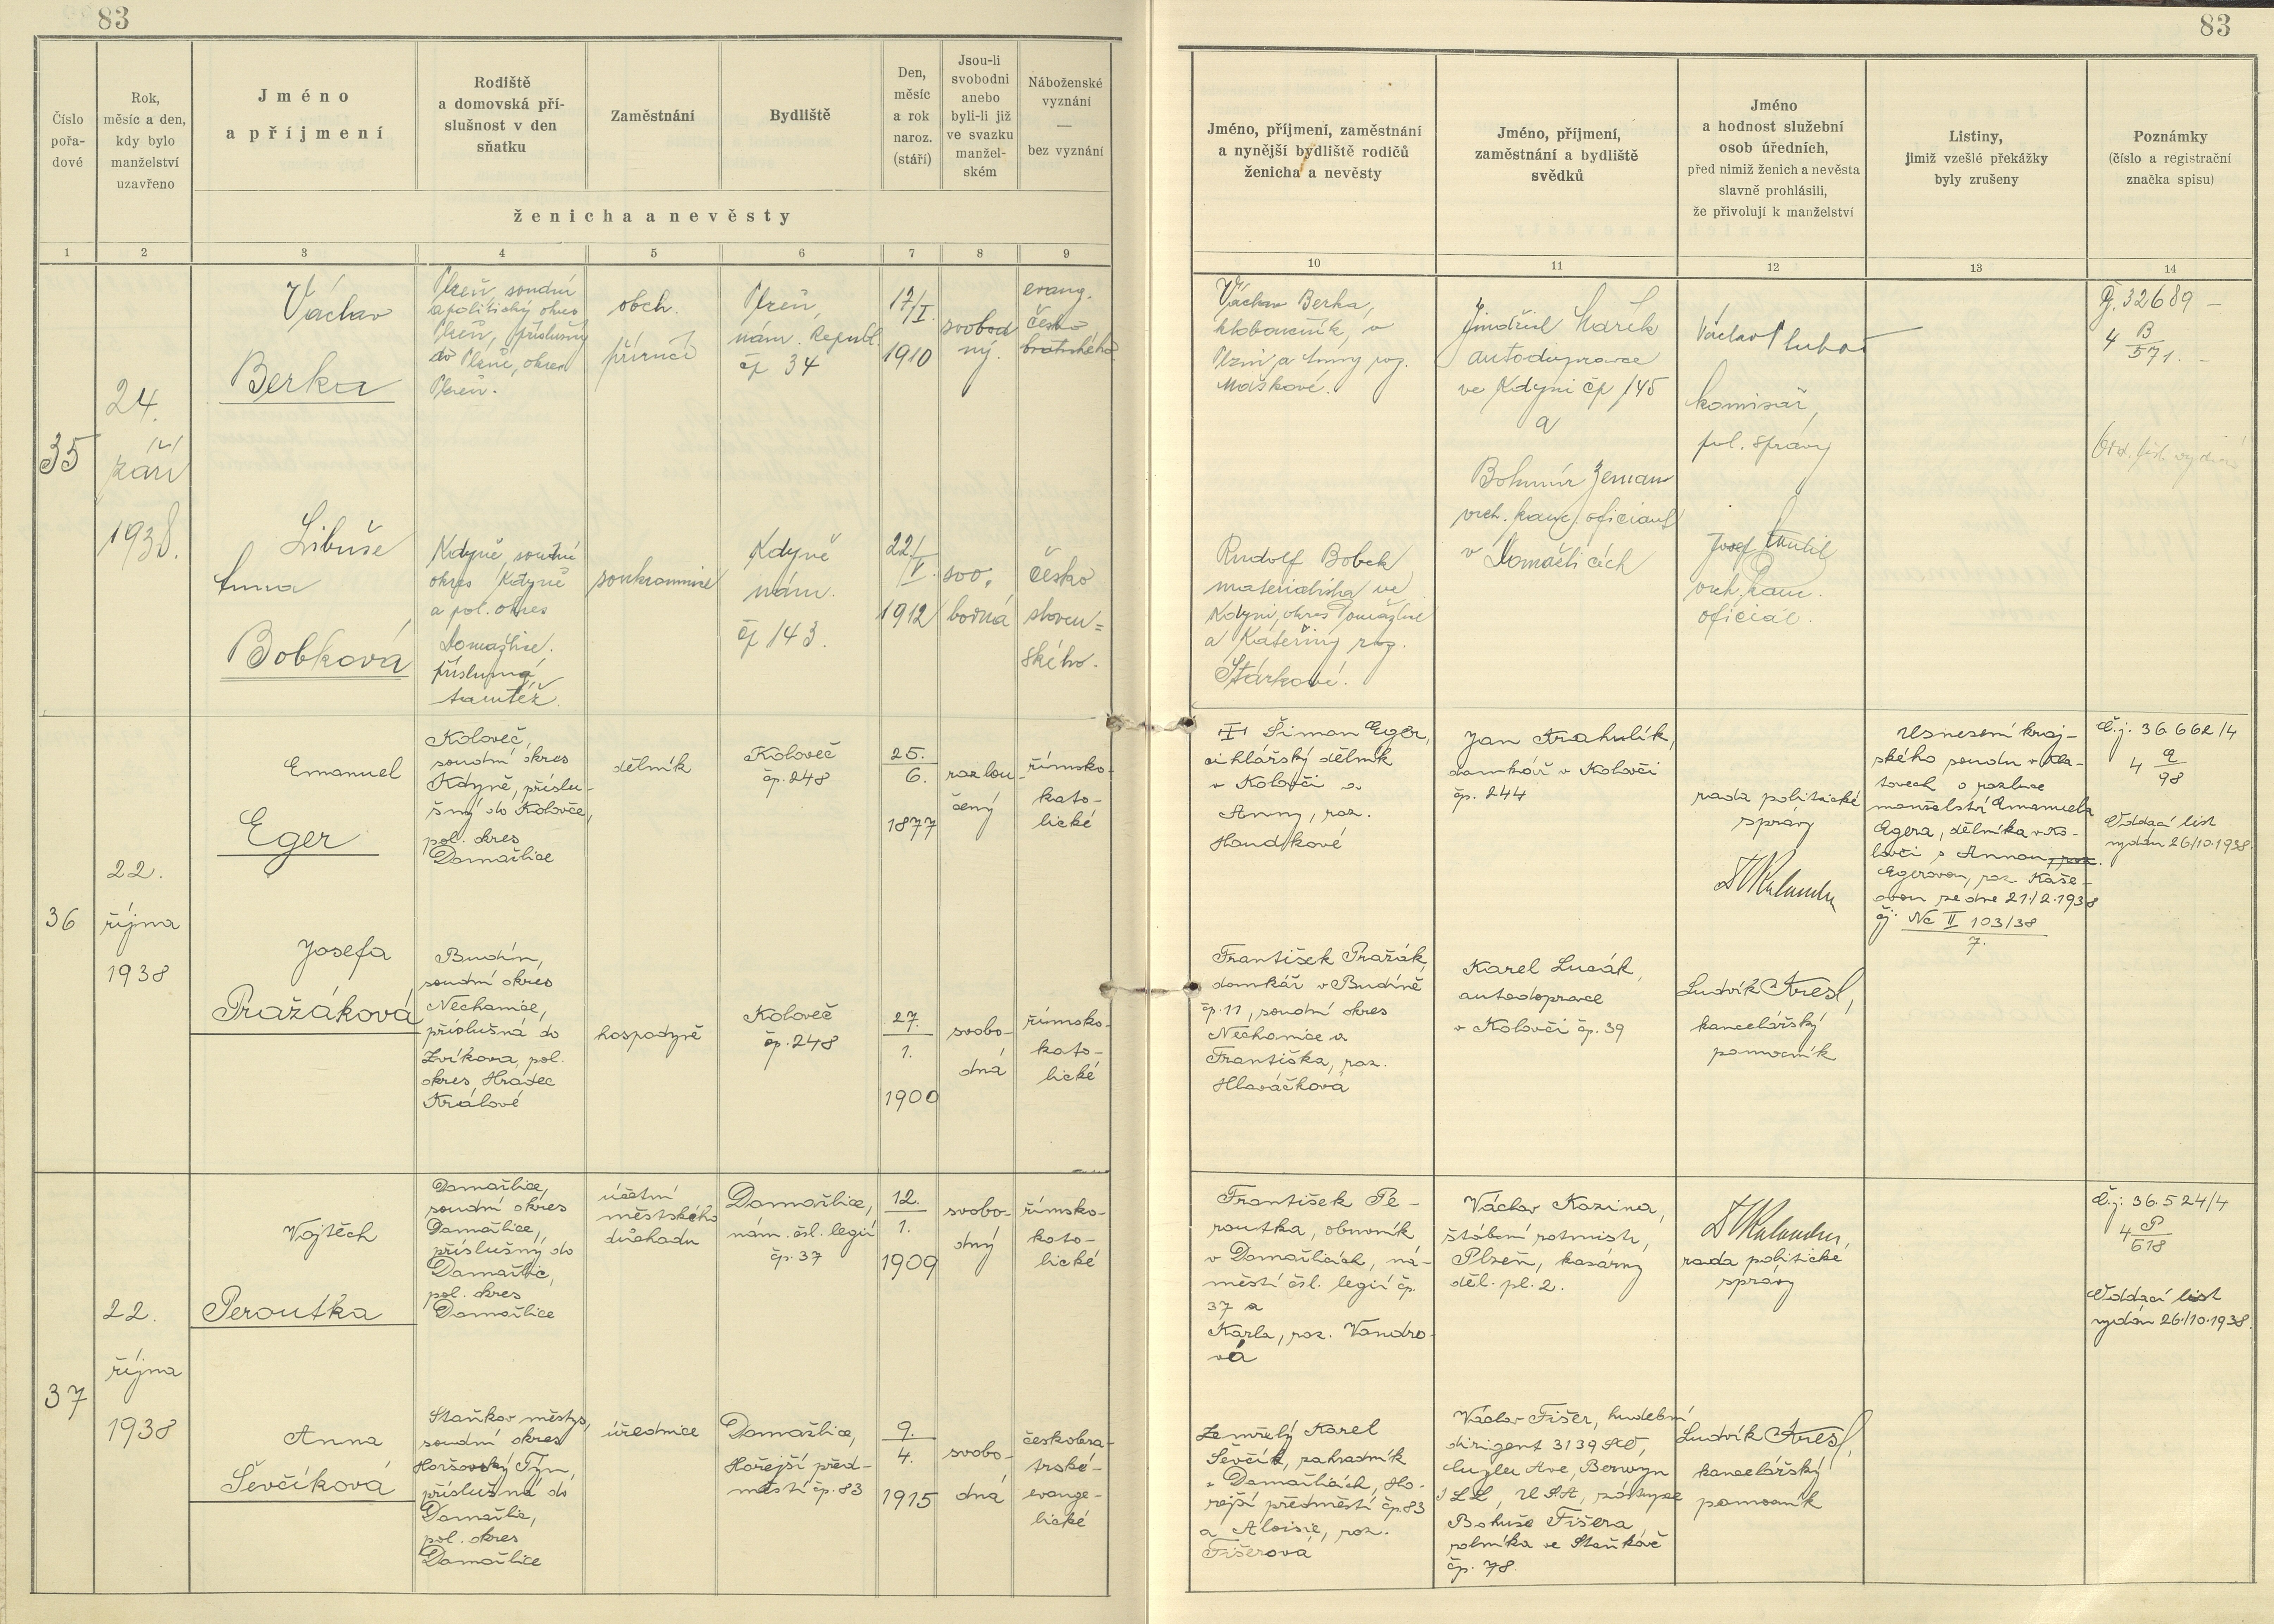 83
83
Číslo
pořa-
dové
Rok,
měsíc a den,
kdy bylo
manželství
uzavřeno
Jméno
a příjmení
Rodiště
a domovská pří-
slušnost v den
sňatku
Zaměstnání
Bydliště
Den,
měsíc
a rok
naroz.
(stáří)
Jsou-li
svobodni
anebo
byli-li již
ve svazku
manžel-
ském
Náboženské
vyznání
—
bez vyznání
ženicha a nevěsty
Jméno, příjmení, zaměstnání
a nynější bydliště rodičů
ženicha a nevěsty
Jméno, příjmení,
zaměstnání a bydliště
svědků
Jméno
a hodnost služební
osob úředních,
před nimiž ženich a nevěsta
slavně prohlásili,
že přivolují k manželství
Listiny,
jimiž vzešlé překážky
byly zrušeny
Poznámky
(číslo a registrační
značka spisu)
1 2 3 4 5 6 7 8 9
10 11 12 13 14
35
24.
září
1938.
Václav
Berka
Plzeň, soudní
a politický okres
Plzeň, příslušný
do Plzně, okres
Plzeň.
obch.
příručí
Plzeň,
nám. Republ.
čp 34
17/
I.
1910
svobod
ný.
evang.
česko
bratrského
Václav Berka,
kloboučník, v
Plzni a Anny roz.
Maškové.
Jindřich Mařík
autodopravce
ve Kdyni čp 145
a
Bohumír Zeman
vrch. kanc. oficiant
v Domažlicích
Václav
komisař,
pol. správy
Josef
vrch. kanc.
oficiál.
Č. j. 32689 –
4 B
571. –
Libuše
Anna
Bobková
Kdyně, soudní
okres Kdyně
a pol. okres
Domažlice.
příslušná
tamtéž.
soukromnice
Kdyně
nám.
čp 143.
22/
V.
1912
svo-
bodná
česko
sloven=
ského.
Rudolf Bobek
materialista ve
Kdyni, okres Domažlice
a Kateřiny roz.
Stárkové.
36
22.
října
1938
Emanuel
Eger
Koloveč,
soudní okres
Kdyně, příslu-
šný do Kolovče,
pol. okres
Domažlice
dělník
Koloveč
čp. 248
25.
6.
1877
rozlou-
čený
římsko-
kato-
lické
Šimon Eger,
cihlářský dělník
v Kolovči a
Anny, roz.
Houdkové
Jan Krahulík,
domkář v Kolovči
čp. 244
rada politické
správy
Usnesení kraj-
ského soudu v Kla-
tovech o rozluce
manželství Emanuela
Egera, dělníka v Ko-
lovči s Annou, roz.
Egerovou, roz. Kaše-
ovou ze dne 21/2.1938
čj. Nc II 103/38
7.
Č.j. 36662/4
4 E
98
Oddací list
vydán 26/10.1938.
Josefa
Pražáková
Budín,
soudní okres
Nechanice,
příslušná do
Zvíkova, pol.
okres, Hradec
Králové
hospodyně
Koloveč
čp. 248
27.
1.
1900
svobo-
dná
římsko-
kato-
lické
František Pražák
domkář v Budíně
čp. 11, soudní okres
Nechanice a
Františka, roz.
Hlaváčková
Karel Lucák,
autodopravce
v Kolovči čp. 39
Ludvík Kresl,
kancelářský
pomocník
37
22.
října
1938
Vojtěch
Peroutka
Domažlice,
soudní okres
Domažlice,
příslušný do
Domažlic,
pol. okres
Domažlice
účetní
městského
důchodu
Domažlice,
nám. čsl. legií
čp. 37
12.
1.
1909
svobo-
dný
římsko-
kato-
lické
František Pe-
routka, obuvník
v Domažlicích, ná-
městí čsl. legií čp.
37 a
Karla, roz. Vondro-
vá
Václav Kozina,
štábní rotmistr,
Plzeň, kasárny
děl. pl. 2.
rada politické
správy
Č.j. 36.524/4
4 P
618
Oddací list
vydán 26/10.1938.
Anna
Ševčíková
Staňkov městys,
soudní okres
Horšovský Týn,
příslušná do
Domažlic,
pol. okres
Domažlice
úřednice
Domažlice,
Hořejší před-
městí čp. 83
9.
4.
1915
svobo-
dná
českobra-
trské-
evange-
lické
Zemřelý Karel
Ševčík, zahradník
v Domažlicích, Ho-
řejší předměstí čp. 83
a Aloisie, roz.
Fišerová
Václav Fišer, hudební
dirigent 3139 So,
Ave, Berwyn
ILL, USA, zástupce
Bohuše Fišera,
rolníka ve Staňkově
čp. 78.
Ludvík Kresl,
kancelářský
pomocník